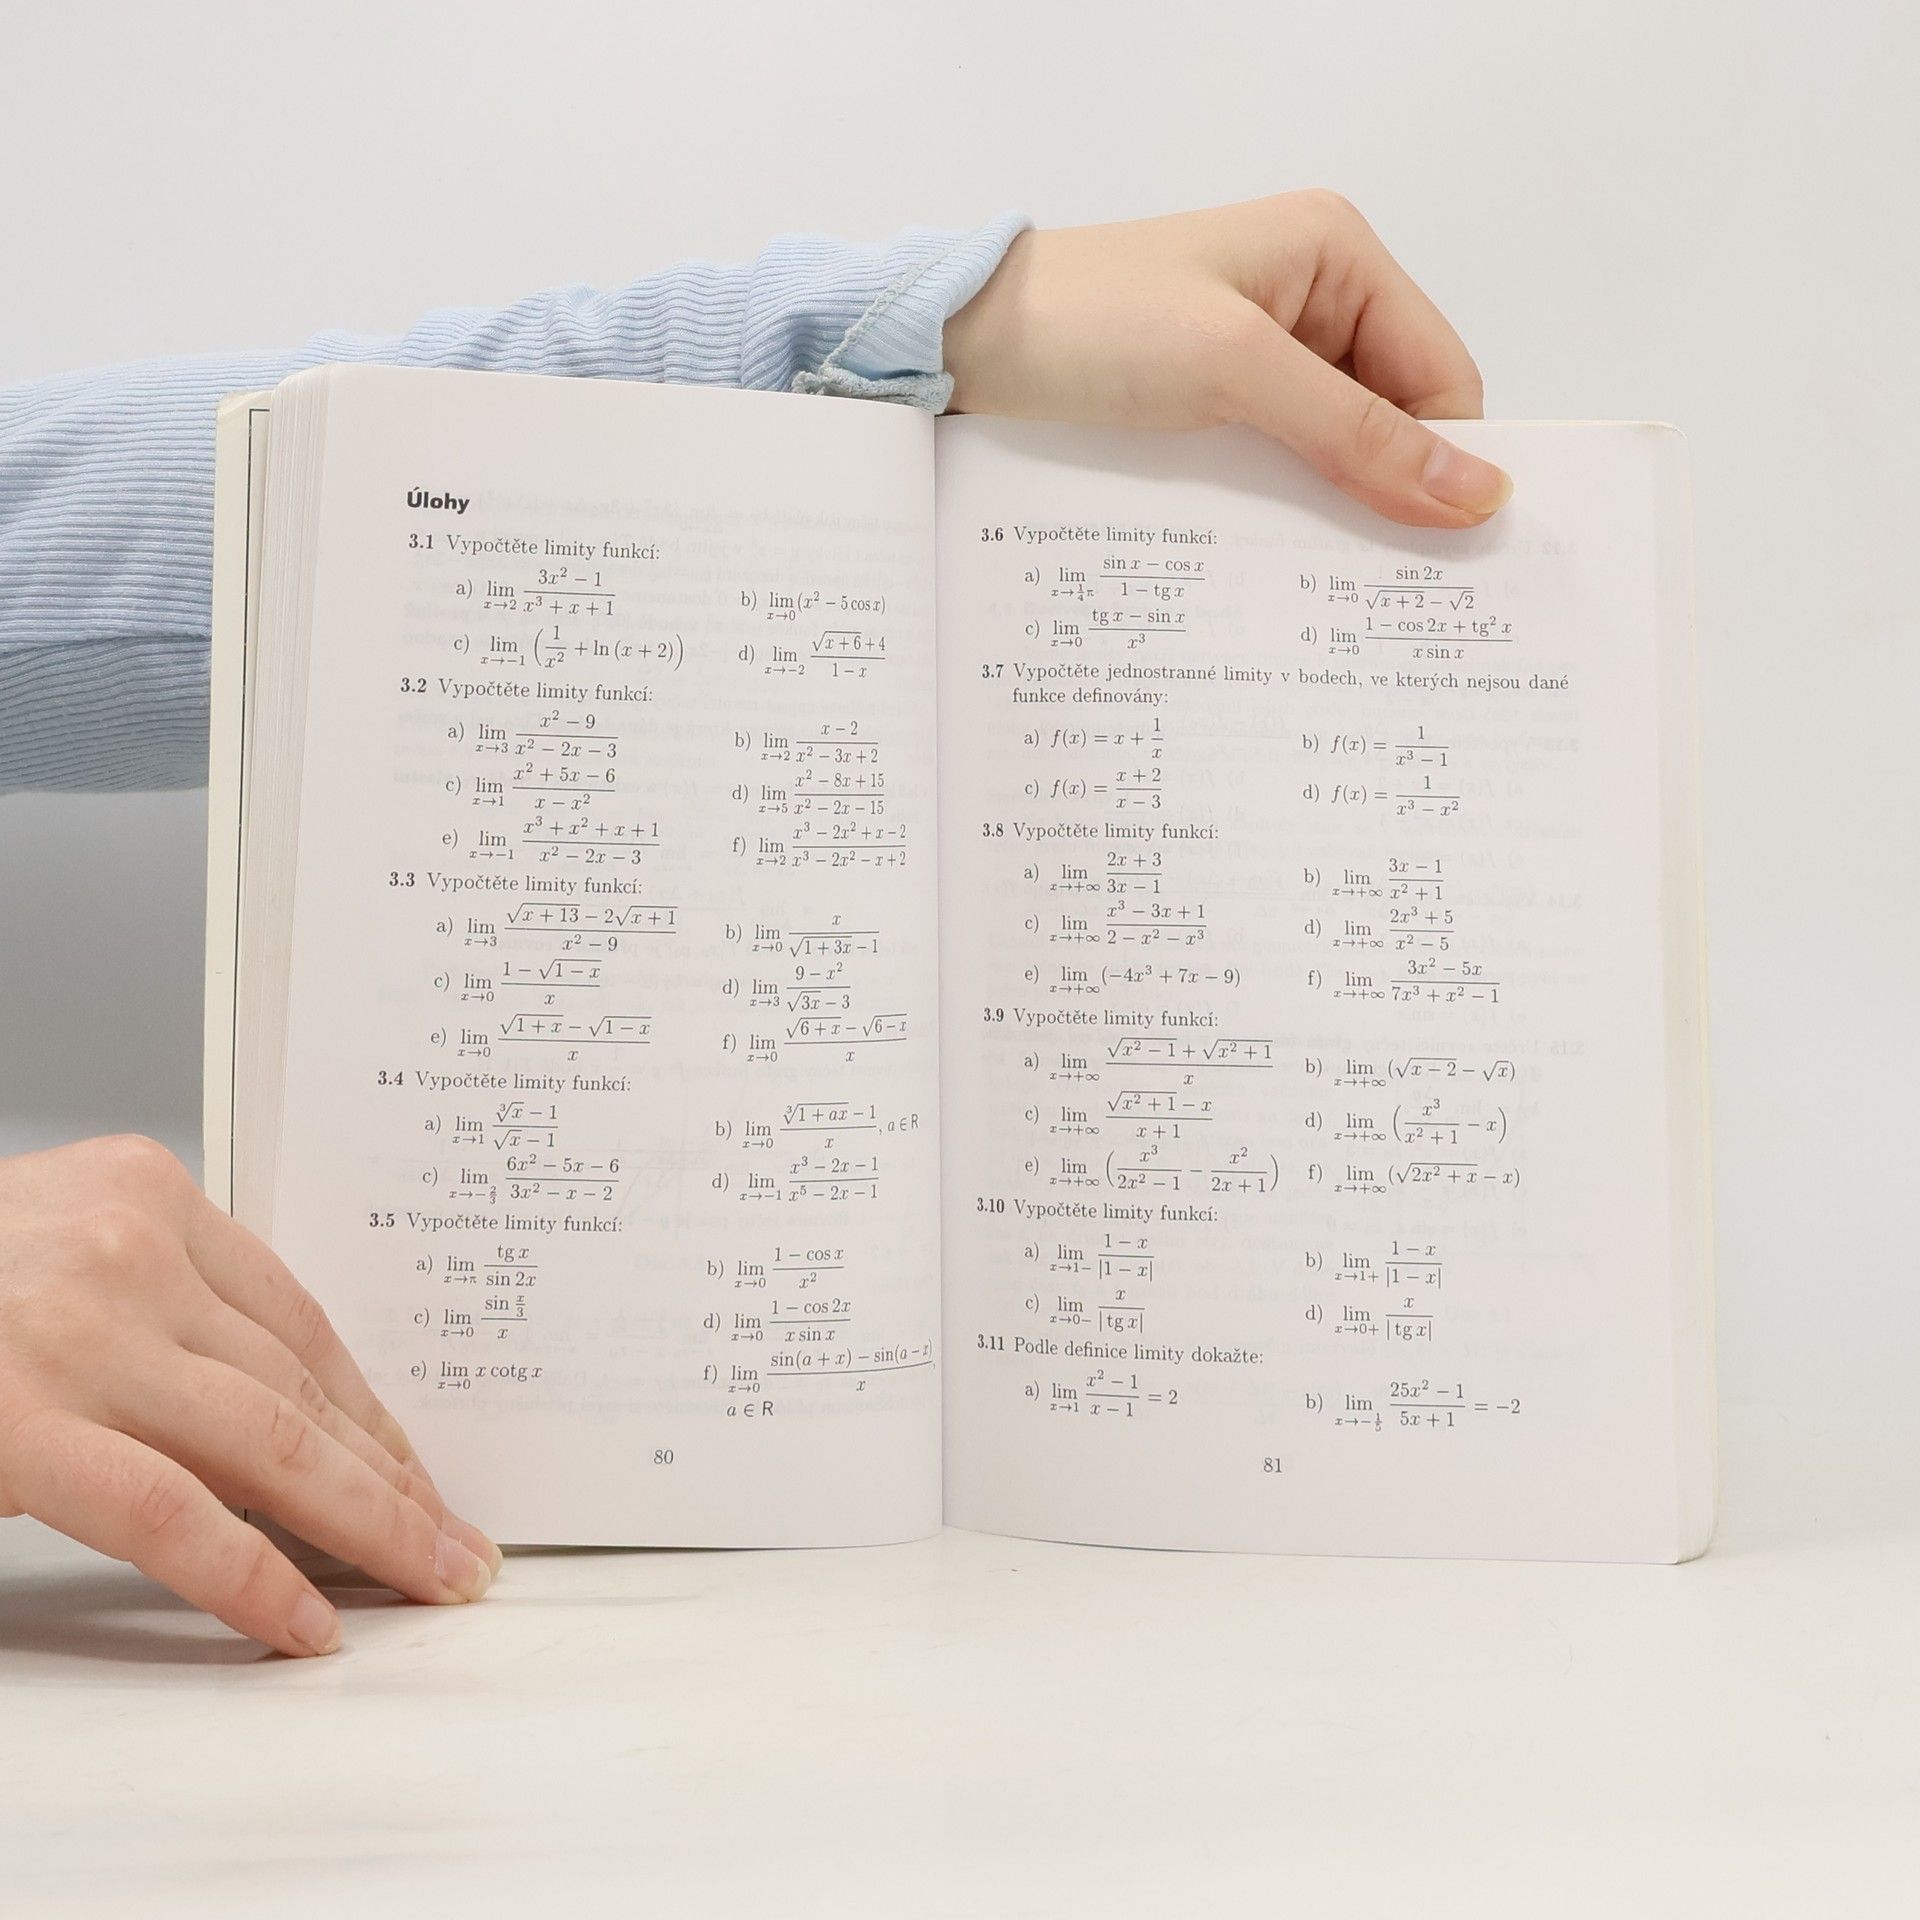 Úlohy
3.1 Vypočtěte limity funkcí:
a) lim_{x→2} (3x² − 1)/(x³ + x + 1)
b) lim_{x→0} (x² − 5 cos x)
c) lim_{x→−1} (1/x² + ln (x + 2))
d) lim_{x→−2} (√(x + 6) + 4)/(1 − x)
3.2 Vypočtěte limity funkcí:
a) lim_{x→3} (x² − 9)/(x² − 2x − 3)
b) lim_{x→2} (x − 2)/(x² − 3x + 2)
c) lim_{x→1} (x² + 5x − 6)/(x − x²)
d) lim_{x→5} (x² − 8x + 15)/(x² − 2x − 15)
e) lim_{x→−1} (x³ + x² + x + 1)/(x² − 2x − 3)
f) lim_{x→2} (x³ − 2x² + x − 2)/(x³ − 2x² − x + 2)
3.3 Vypočtěte limity funkcí:
a) lim_{x→3} (√(x + 13) − 2√(x + 1))/(x² − 9)
b) lim_{x→0} x/(√(1 + 3x) − 1)
c) lim_{x→0} (1 − √(1 − x))/x
d) lim_{x→3} (9 − x²)/(√(3x) − 3)
e) lim_{x→0} (√(1 + x) − √(1 − x))/x
f) lim_{x→0} (√(6 + x) − √(6 − x))/x
3.4 Vypočtěte limity funkcí:
a) lim_{x→1} (∛x − 1)/(√x − 1)
b) lim_{x→0} (∛(1 + ax) − 1)/x, a ∈ R
c) lim_{x→−2/3} (6x² − 5x − 6)/(3x² − x − 2)
d) lim_{x→−1} (x³ − 2x − 1)/(x⁵ − 2x − 1)
3.5 Vypočtěte limity funkcí:
a) lim_{x→π} tg x/sin 2x
b) lim_{x→0} (1 − cos x)/x²
c) lim_{x→0} (sin x/3)/x
d) lim_{x→0} (1 − cos 2x)/(x sin x)
e) lim_{x→0} x cotg x
f) lim_{x→0} (sin(a + x) − sin(a − x))/x,
a ∈ R
80
3.6 Vypočtěte limity funkcí:
a) lim_{x→¼π} (sin x − cos x)/(1 − tg x)
b) lim_{x→0} sin 2x/(√(x + 2) − √2)
c) lim_{x→0} (tg x − sin x)/x³
d) lim_{x→0} (1 − cos 2x + tg² x)/(x sin x)
3.7 Vypočtěte jednostranné limity v bodech, ve kterých nejsou dané
funkce definovány:
a) f(x) = x + 1/x
b) f(x) = 1/(x³ − 1)
c) f(x) = (x + 2)/(x − 3)
d) f(x) = 1/(x³ − x²)
3.8 Vypočtěte limity funkcí:
a) lim_{x→+∞} (2x + 3)/(3x − 1)
b) lim_{x→+∞} (3x − 1)/(x² + 1)
c) lim_{x→+∞} (x³ − 3x + 1)/(2 − x² − x³)
d) lim_{x→+∞} (2x³ + 5)/(x² − 5)
e) lim_{x→+∞} (−4x³ + 7x − 9)
f) lim_{x→+∞} (3x² − 5x)/(7x³ + x² − 1)
3.9 Vypočtěte limity funkcí:
a) lim_{x→+∞} (√(x² − 1) + √(x² + 1))/x
b) lim_{x→+∞} (√(x − 2) − √x)
c) lim_{x→+∞} (√(x² + 1) − x)/(x + 1)
d) lim_{x→+∞} (x³/(x² + 1) − x)
e) lim_{x→+∞} (x³/(2x² − 1) − x²/(2x + 1))
f) lim_{x→+∞} (√(2x² + x) − x)
3.10 Vypočtěte limity funkcí:
a) lim_{x→1−} (1 − x)/|1 − x|
b) lim_{x→1+} (1 − x)/|1 − x|
c) lim_{x→0−} x/|tg x|
d) lim_{x→0+} x/|tg x|
3.11 Podle definice limity dokažte:
a) lim_{x→1} (x² − 1)/(x − 1) = 2
b) lim_{x→−1/5} (25x² − 1)/(5x + 1) = −2
81